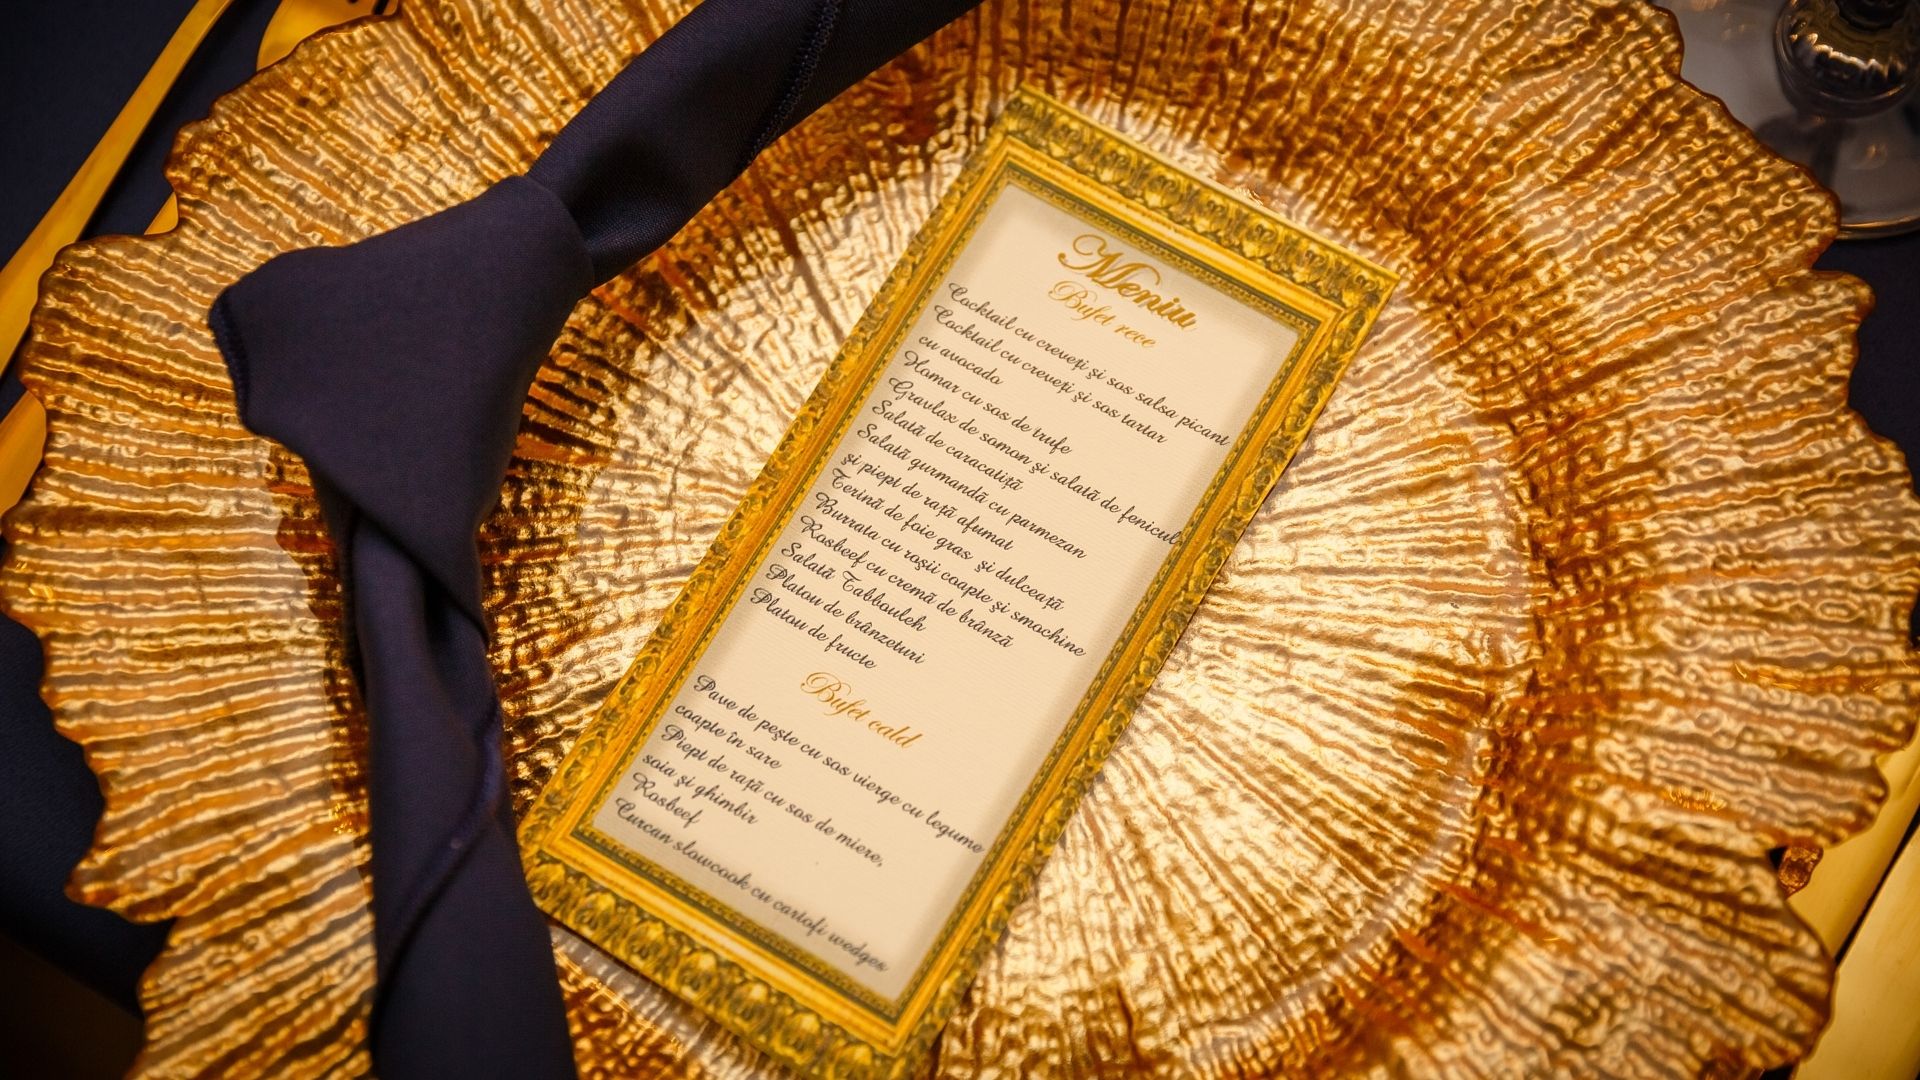 Meniu
Bufet rece
Cocktail cu creveți și sos salsa picant
Cocktail cu creveți și sos tartar
cu avocado
Homar cu sos de trufe
Gravlax de somon și salată de fenicul
Salată de caracatiță
Salată gurmandă cu parmezan
și piept de rață afumat
Terină de foie gras și dulceață
Burrata cu roșii coapte și smochine
Rosbeef cu cremă de brânză
Salată Tabbouleh
Platou de brânzeturi
Platou de fructe
Bufet cald
Pave de pește cu sos vierge cu legume
coapte în sare
Piept de rață cu sos de miere,
soia și ghimbir
Rosbeef
Curcan slowcook cu cartofi wedges